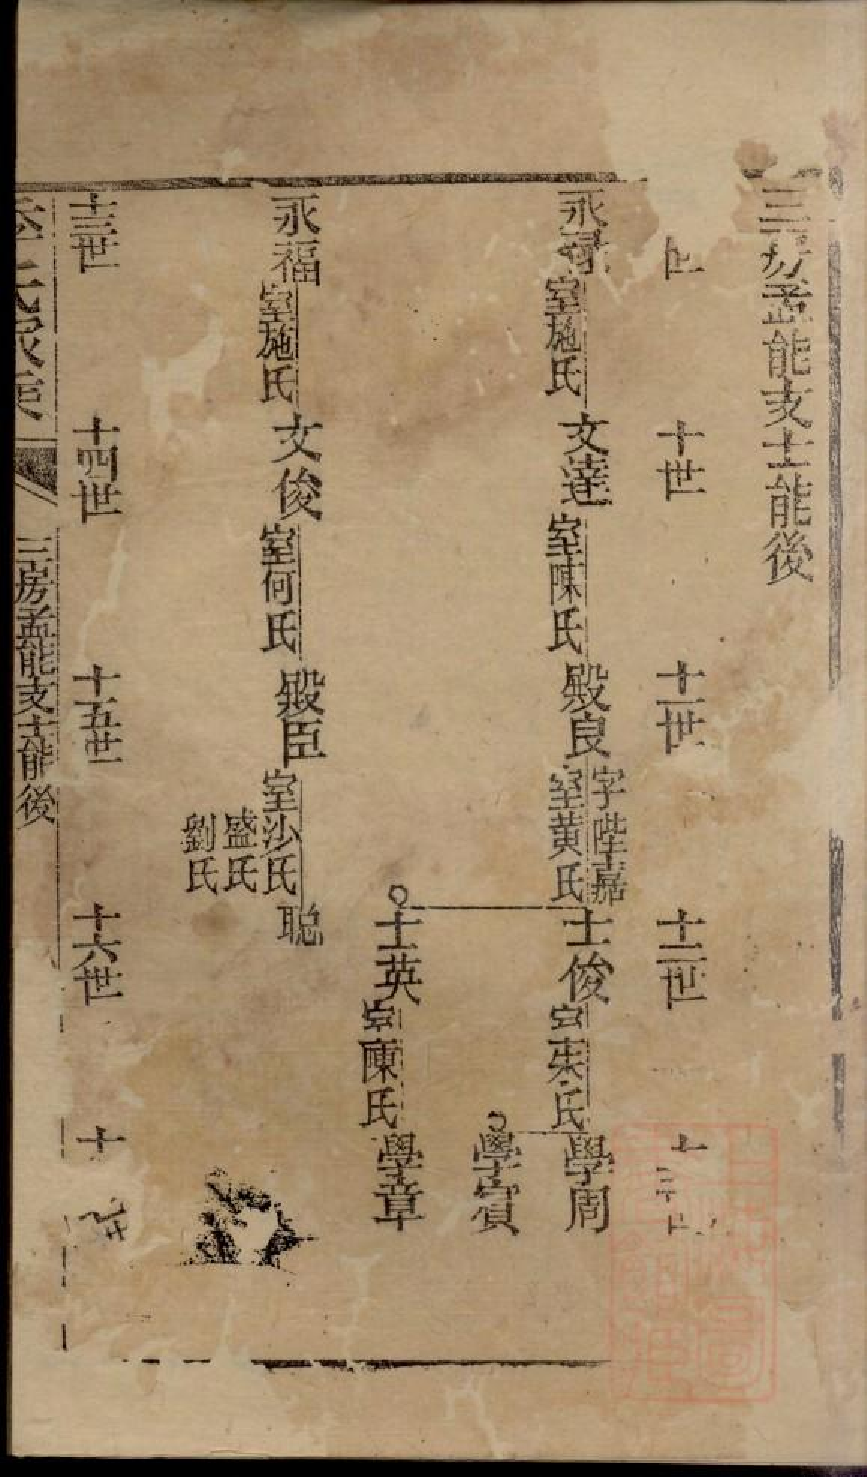 三房孟能支士能後
世 十世 十一世 十二世 十三世
永祿 室施氏 文達 室陳氏 殿良 字陛嘉 室黄氏 士俊 室朱氏 學周
學賓
士英 室陳氏 學章
永福 室施氏 文俊 室何氏 殿臣 室沙氏 盛氏 劉氏 聡
十三世 十四世 十五世 十六世 十
氏家乘 三房孟能支士能後